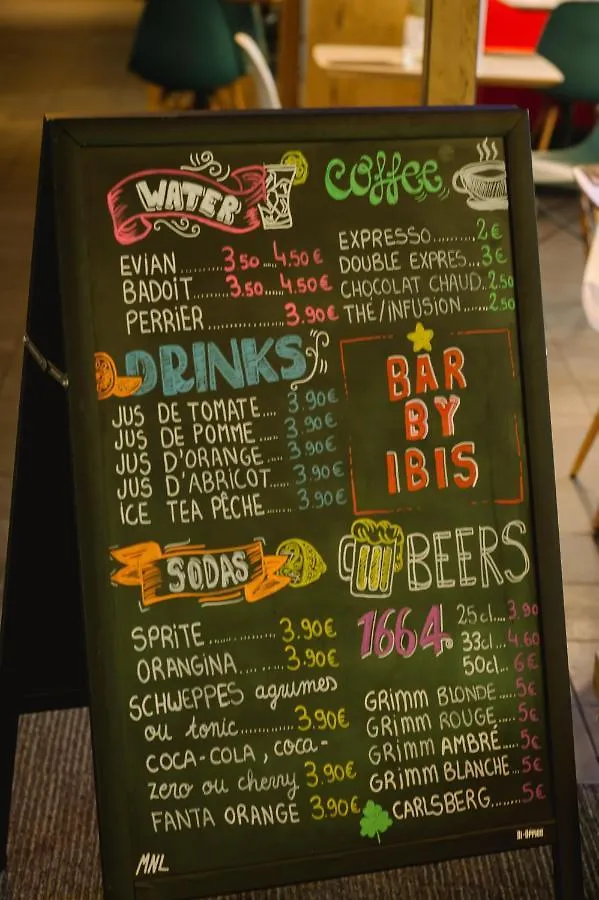 WATER
EVIAN.........3.50...4.50€
BADOIT.......3.50....4.50€
PERRIER................3.90€
coffee
EXPRESSO.........2€
DOUBLE EXPRES...3€
CHOCOLAT CHAUD..2.50
THÉ/INFUSION......2.50
DRINKS
JUS DE TOMATE.... 3.90€
JUS DE POMME..... 3.90€
JUS D'ORANGE..... 3.90€
JUS D'ABRICOT.... 3.90€
ICE TEA PÊCHE...... 3.90€
BAR
BY
IBIS
SODAS
SPRITE.............3.90€
ORANGINA........3.90€
SCHWEPPES agrumes
ou tonic............3.90€
COCA-COLA, coca-
zero ou cherry 3.90€
FANTA ORANGE 3.90€
BEERS
1664 25cl...3.90
33cl...4.60
50cl...6€
GRIMM BLONDE....5€
GRIMM ROUGE.....5€
GRIMM AMBRÉ....5€
GRIMM BLANCHE...5€
CARLSBERG........5€
MNL